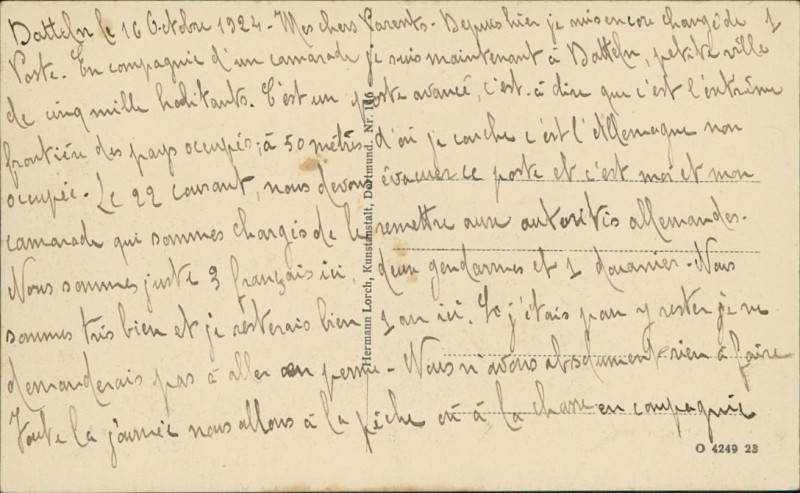 Datteln le 16 Octobre 1924 - Mes chers Parents - Depuis hier je suis encore changé de 1
Poste. En compagnie d'un camarade je suis maintenant à Datteln, petite ville
de cinq mille habitants. C'est un poste avancé, c'est-à-dire que c'est l'extrême
frontière des pays occupés; à 50 mètres d'où je couche c'est l'Allemagne non
occupée - Le 22 courant, nous devons évacuer ce poste et c'est moi et mon
camarade qui sommes chargés de le remettre aux autorités allemandes.
Nous sommes juste 3 français ici, deux gendarmes et 1 douanier - Nous
sommes très bien et je resterais bien 1 an ici. Si j'étais pour y rester je ne
demanderais pas à aller en perme - Nous n'avons absolument rien à faire
Toute la journée nous allons à la pêche où à la chasse en compagnie
Hermann Lorch, Kunstanstalt, Dortmund. Nr. 116
O 4249 23